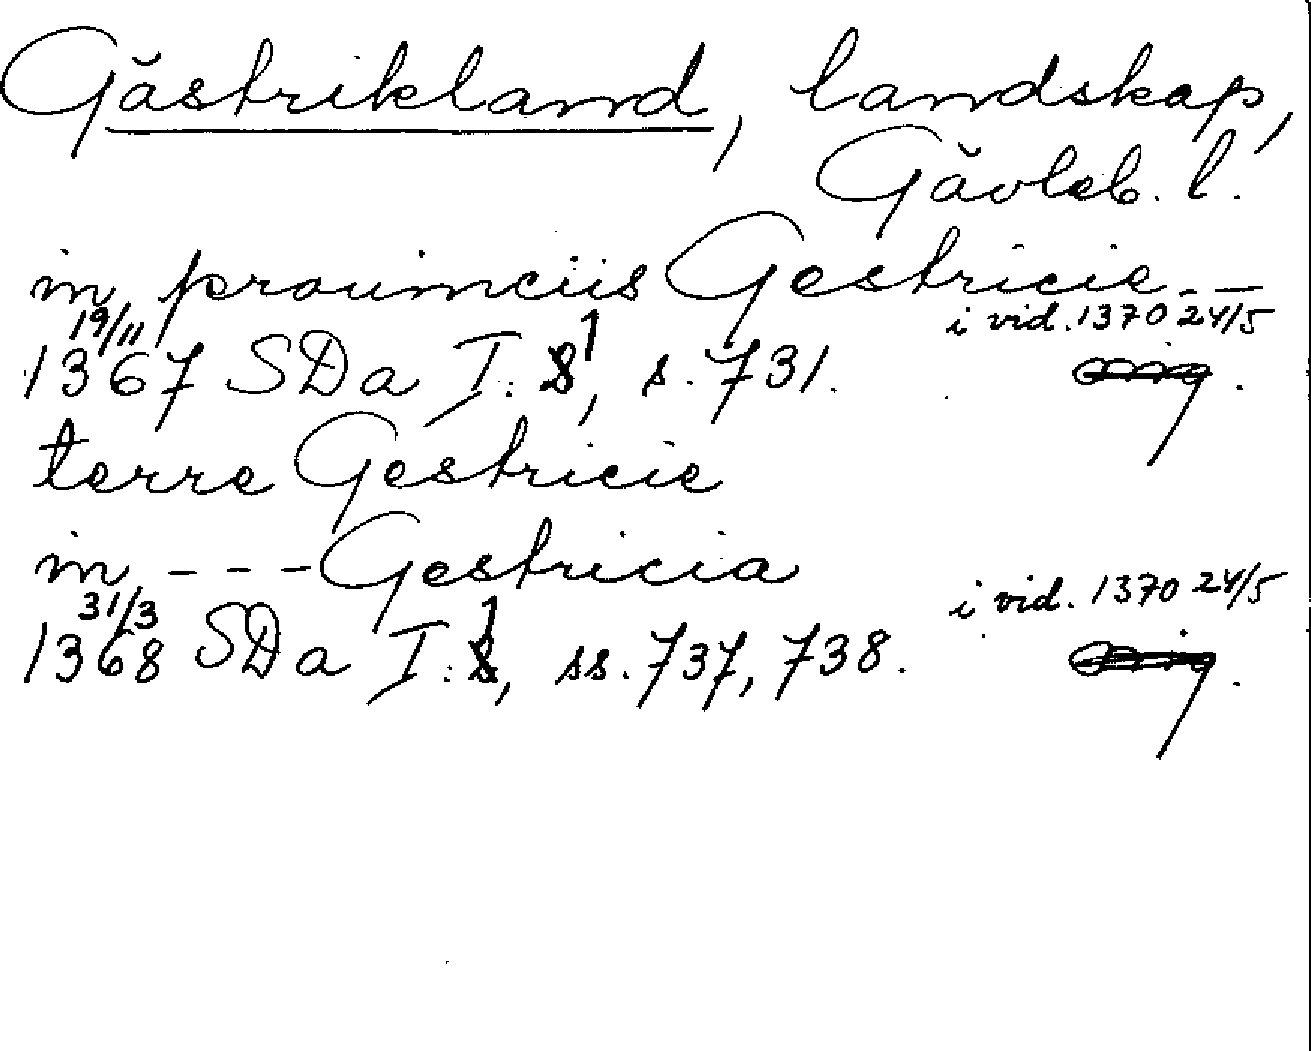 Gästrikland, landskap,
Gävleb. l.
in prouinciis Gestricie - -
19/11 i vid. 1370 24/5
1367 SDa I: 1, s. 731.
terre Gestricie
in - - - Gestricia
31/3 i vid. 1370 24/5
1368 SDa I: 1, ss. 737, 738.